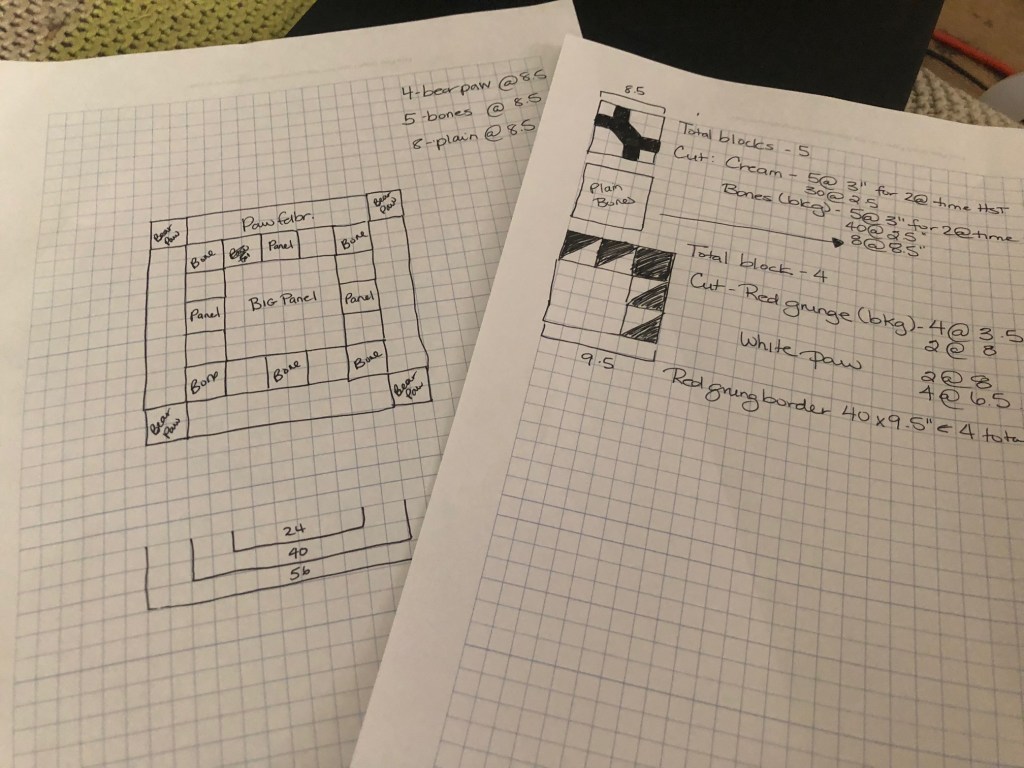 4-bear paw @ 8.5
5-bones @ 8.5
8-plain @ 8.5
Bear Paw
Paw fabr.
Bear Paw
Bone
Panel
Bone
Panel
BIG Panel
Panel
Bone
Bone
Bone
Bear Paw
Bear Paw
24
40
56
8.5
Total blocks - 5
Cut: Cream - 5@ 3" for 2@ time HST
30@ 2.5
Bones (bkg) - 5@ 3" for 2@time
40@ 2.5
8@ 8.5"
Plain Bones
Total block - 4
Cut - Red grunge (bkg) - 4@ 3.5
2 @ 8
White paw
2@ 8
4@ 6.5
9.5
Red grung border 40 x 9.5" ← 4 tota